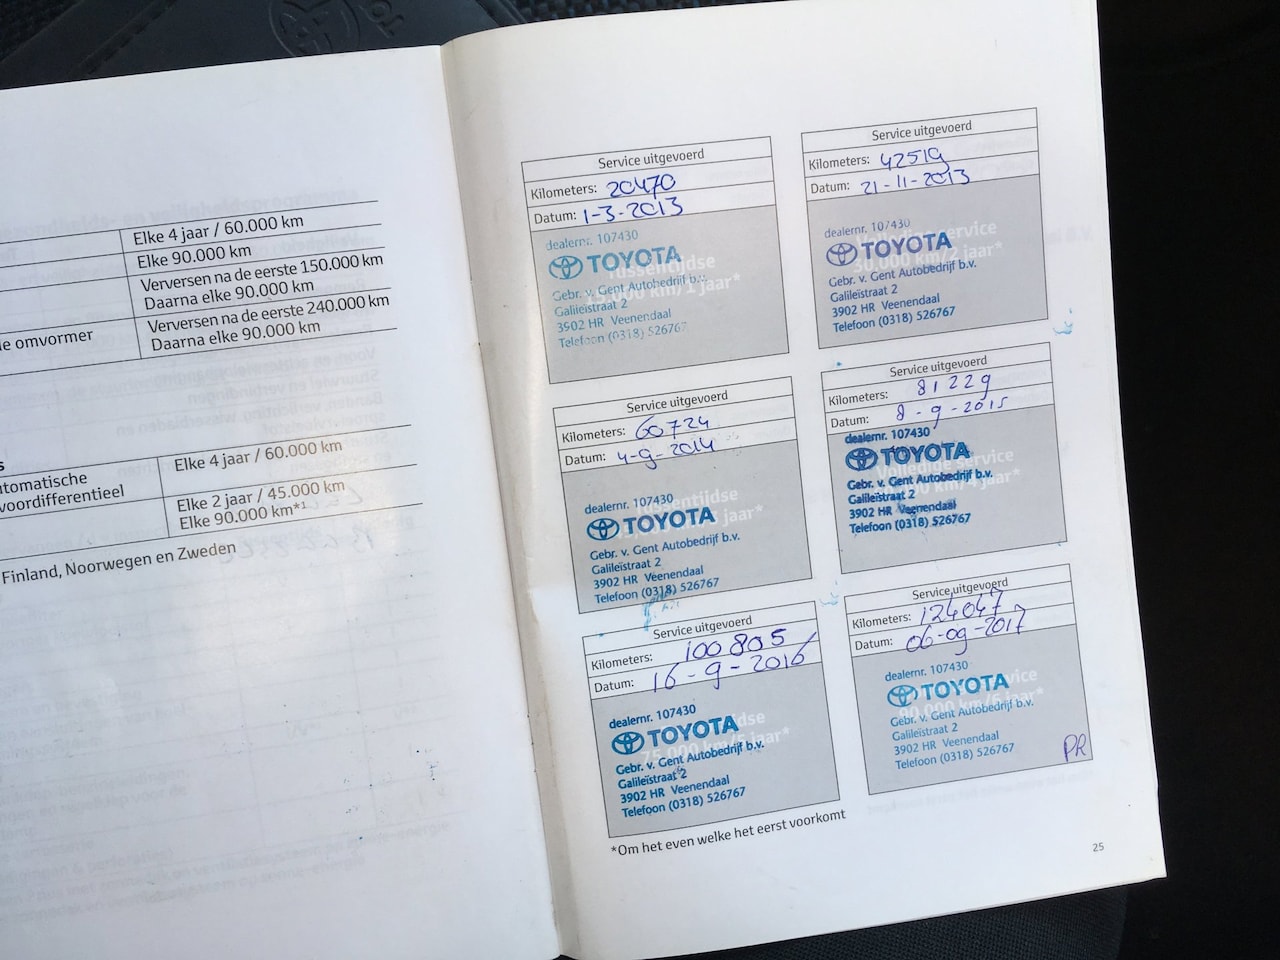 Elke 4 jaar / 60.000 km
Elke 90.000 km
Verversen na de eerste 150.000 km
Daarna elke 90.000 km
omvormer
Verversen na de eerste 240.000 km
Daarna elke 90.000 km
Elke 4 jaar / 60.000 km
Elke 2 jaar / 45.000 km
Elke 90.000 km*1
Finland, Noorwegen en Zweden
Service uitgevoerd
Kilometers: 20470
Datum: 1-3-2013
dealernr. 107430
TOYOTA
Tussentijdse
15.000 km/1 jaar*
Gebr. v. Gent Autobedrijf b.v.
Galileïstraat 2
3902 HR Veenendaal
Telefoon (0318) 526767
Service uitgevoerd
Kilometers: 42519
Datum: 21-11-2013
dealernr. 107430
TOYOTA
Volledige service
30.000 km/2 jaar*
Gebr. v. Gent Autobedrijf b.v.
Galileïstraat 2
3902 HR Veenendaal
Telefoon (0318) 526767
Service uitgevoerd
Kilometers: 60724
Datum: 4-9-2014
dealernr. 107430
TOYOTA
Tussentijdse
jaar*
Gebr. v. Gent Autobedrijf b.v.
Galileïstraat 2
3902 HR Veenendaal
Telefoon (0318) 526767
Service uitgevoerd
Kilometers: 81229
Datum: 8-9-2015
dealernr. 107430
TOYOTA
Volledige service
km/4 jaar*
Gebr. v. Gent Autobedrijf b.v.
Galileïstraat 2
3902 HR Veenendaal
Telefoon (0318) 526767
Service uitgevoerd
Kilometers: 100805
Datum: 16-9-2016
dealernr. 107430
TOYOTA
75.000 km/5 jaar*
Gebr. v. Gent Autobedrijf b.v.
Galileïstraat 2
3902 HR Veenendaal
Telefoon (0318) 526767
Service uitgevoerd
Kilometers: 124047
Datum: 06-09-2017
dealernr. 107430
TOYOTA
service
90.000 km/6 jaar*
Gebr. v. Gent Autobedrijf b.v.
Galileïstraat 2
3902 HR Veenendaal
Telefoon (0318) 526767
PR
*Om het even welke het eerst voorkomt
25